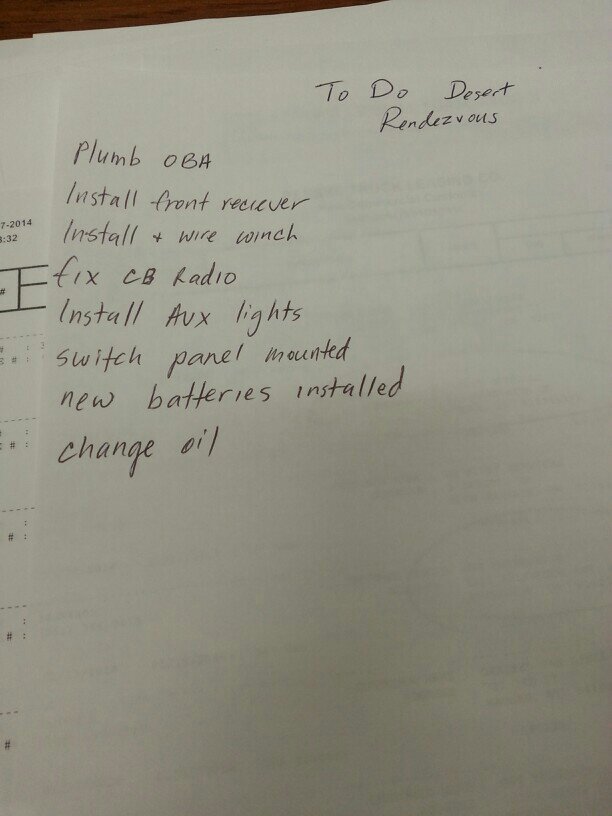 To Do Desert
Rendezvous
Plumb OBA
Install front reciever
Install + wire winch
fix CB Radio
Install Aux lights
switch panel mounted
new batteries installed
change oil
7-2014
:32
#
# :
# :
# :
# :
# :
# :
#